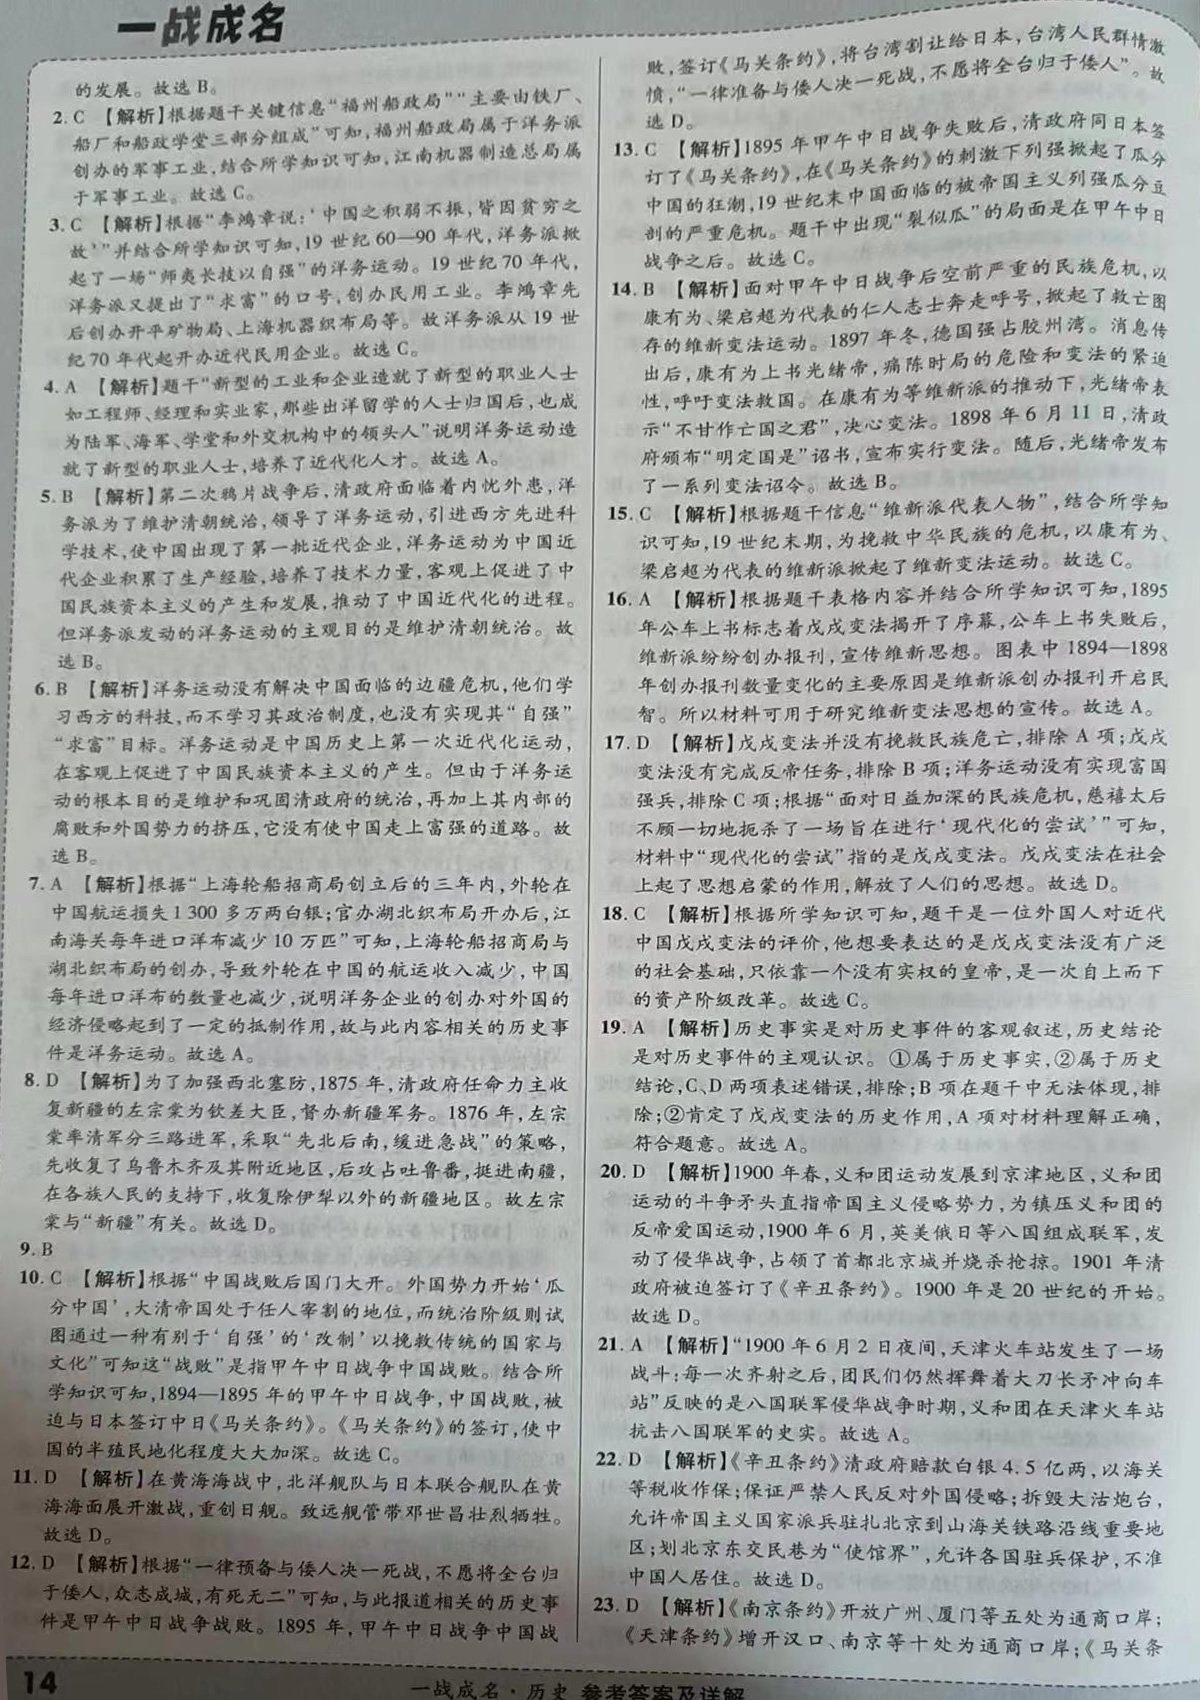 一战成名
的发展。故选B。
2. C 【解析】根据题干关键信息“福州船政局”“主要由铁厂、
船厂和船政学堂三部分组成”可知,福州船政局属于洋务派
创办的军事工业,结合所学知识可知,江南机器制造总局属
于军事工业。故选C。
3. C 【解析】根据“李鸿章说:‘中国之积弱不振,皆因贫穷之
故’”并结合所学知识可知,19世纪60—90年代,洋务派掀
起了一场“师夷长技以自强”的洋务运动。19世纪70年代,
洋务派又提出了“求富”的口号,创办民用工业。李鸿章先
后创办开平矿物局、上海机器织布局等。故洋务派从19世
纪70年代起开办近代民用企业。故选C。
4. A 【解析】题干“新型的工业和企业造就了新型的职业人士
如工程师、经理和实业家,那些出洋留学的人士归国后,也成
为陆军、海军、学堂和外交机构中的领头人”说明洋务运动造
就了新型的职业人士,培养了近代化人才。故选A。
5. B 【解析】第二次鸦片战争后,清政府面临着内忧外患,洋
务派为了维护清朝统治,领导了洋务运动,引进西方先进科
学技术,使中国出现了第一批近代企业,洋务运动为中国近
代企业积累了生产经验,培养了技术力量,客观上促进了中
国民族资本主义的产生和发展,推动了中国近代化的进程。
但洋务派发动的洋务运动的主观目的是维护清朝统治。故
选B。
6. B 【解析】洋务运动没有解决中国面临的边疆危机,他们学
习西方的科技,而不学习其政治制度,也没有实现其“自强”
“求富”目标。洋务运动是中国历史上第一次近代化运动,
在客观上促进了中国民族资本主义的产生。但由于洋务运
动的根本目的是维护和巩固清政府的统治,再加上其内部的
腐败和外国势力的挤压,它没有使中国走上富强的道路。故
选B。
7. A 【解析】根据“上海轮船招商局创立后的三年内,外轮在
中国航运损失1 300多万两白银;官办湖北织布局开办后,江
南海关每年进口洋布减少10万匹”可知,上海轮船招商局与
湖北织布局的创办,导致外轮在中国的航运收入减少,中国
每年进口洋布的数量也减少,说明洋务企业的创办对外国的
经济侵略起到了一定的抵制作用,故与此内容相关的历史事
件是洋务运动。故选A。
8. D 【解析】为了加强西北塞防,1875年,清政府任命力主收
复新疆的左宗棠为钦差大臣,督办新疆军务。1876年,左宗
棠率清军分三路进军,采取“先北后南,缓进急战”的策略,
先收复了乌鲁木齐及其附近地区,后攻占吐鲁番,挺进南疆,
在各族人民的支持下,收复除伊犁以外的新疆地区。故左宗
棠与“新疆”有关。故选D。
9. B
10. C 【解析】根据“中国战败后国门大开。外国势力开始‘瓜
分中国’,大清帝国处于任人宰割的地位,而统治阶级则试
图通过一种有别于‘自强’的‘改制’以挽救传统的国家与
文化”可知这“战败”是指甲午中日战争中国战败。结合所
学知识可知,1894—1895年的甲午中日战争,中国战败,被
迫与日本签订中日《马关条约》。《马关条约》的签订,使中
国的半殖民地化程度大大加深。故选C。
11. D 【解析】在黄海海战中,北洋舰队与日本联合舰队在黄
海海面展开激战,重创日舰。致远舰管带邓世昌壮烈牺牲。
故选D。
12. D 【解析】根据“一律预备与倭人决一死战,不愿将全台归
于倭人,众志成城,有死无二”可知,与此报道相关的历史事
件是甲午中日战争战败。1895年,甲午中日战争中国战
败,签订《马关条约》,将台湾割让给日本,台湾人民群情激
愤,“一律准备与倭人决一死战,不愿将全台归于倭人”。故
选D。
13. C 【解析】1895年甲午中日战争失败后,清政府同日本签
订了《马关条约》,在《马关条约》的刺激下列强掀起了瓜分
中国的狂潮,19世纪末中国面临的被帝国主义列强瓜分豆
剖的严重危机。题干中出现“裂似瓜”的局面是在甲午中日
战争之后。故选C。
14. B 【解析】面对甲午中日战争后空前严重的民族危机,以
康有为、梁启超为代表的仁人志士奔走呼号,掀起了救亡图
存的维新变法运动。1897年冬,德国强占胶州湾。消息传
出后,康有为上书光绪帝,痛陈时局的危险和变法的紧迫
性,呼吁变法救国。在康有为等维新派的推动下,光绪帝表
示“不甘作亡国之君”,决心变法。1898年6月11日,清政
府颁布“明定国是”诏书,宣布实行变法。随后,光绪帝发布
了一系列变法诏令。故选B。
15. C 【解析】根据题干信息“维新派代表人物”,结合所学知
识可知,19世纪末期,为挽救中华民族的危机,以康有为、
梁启超为代表的维新派掀起了维新变法运动。故选C。
16. A 【解析】根据题干表格内容并结合所学知识可知,1895
年公车上书标志着戊戌变法揭开了序幕,公车上书失败后,
维新派纷纷创办报刊,宣传维新思想。图表中1894—1898
年创办报刊数量变化的主要原因是维新派创办报刊开启民
智。所以材料可用于研究维新变法思想的宣传。故选A。
17. D 【解析】戊戌变法并没有挽救民族危亡,排除A项;戊戌
变法没有完成反帝任务,排除B项;洋务运动没有实现富国
强兵,排除C项;根据“面对日益加深的民族危机,慈禧太后
不顾一切地扼杀了一场旨在进行‘现代化的尝试’”可知,
材料中“现代化的尝试”指的是戊戌变法。戊戌变法在社会
上起了思想启蒙的作用,解放了人们的思想。故选D。
18. C 【解析】根据所学知识可知,题干是一位外国人对近代
中国戊戌变法的评价,他想要表达的是戊戌变法没有广泛
的社会基础,只依靠一个没有实权的皇帝,是一次自上而下
的资产阶级改革。故选C。
19. A 【解析】历史事实是对历史事件的客观叙述,历史结论
是对历史事件的主观认识。①属于历史事实,②属于历史
结论,C、D两项表述错误,排除;B项在题干中无法体现,排
除;②肯定了戊戌变法的历史作用,A项对材料理解正确,
符合题意。故选A。
20. D 【解析】1900年春,义和团运动发展到京津地区,义和团
运动的斗争矛头直指帝国主义侵略势力,为镇压义和团的
反帝爱国运动,1900年6月,英美俄日等八国组成联军,发
动了侵华战争,占领了首都北京城并烧杀抢掠。1901年清
政府被迫签订了《辛丑条约》。1900年是20世纪的开始。
故选D。
21. A 【解析】“1900年6月2日夜间,天津火车站发生了一场
战斗:每一次齐射之后,团民们仍然挥舞着大刀长矛冲向车
站”反映的是八国联军侵华战争时期,义和团在天津火车站
抗击八国联军的史实。故选A。
22. D 【解析】《辛丑条约》清政府赔款白银4.5亿两,以海关
等税收作保;保证严禁人民反对外国侵略;拆毁大沽炮台,
允许帝国主义国家派兵驻扎北京到山海关铁路沿线重要地
区;划北京东交民巷为“使馆界”,允许各国驻兵保护,不准
中国人居住。故选D。
23. D 【解析】《南京条约》开放广州、厦门等五处为通商口岸;
《天津条约》增开汉口、南京等十处为通商口岸;《马关条
14
一战成名·历史 参考答案及详解